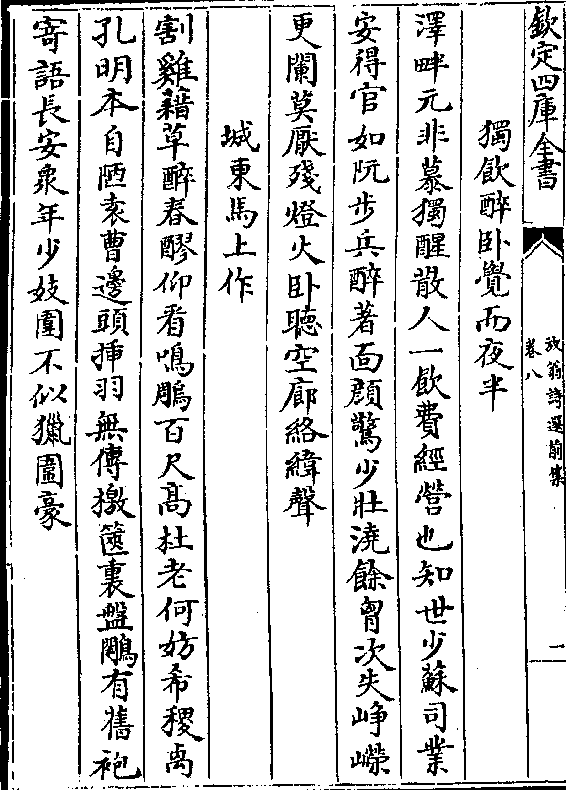 欽定四庫全書
放翁詩選前集
卷八
一
獨飲醉卧覺而夜半
澤畔元非慕獨醒散人一飲費經營也知世少蘇司業
安得官如阮步兵醉著面顔驚少壯澆餘胷次失崢嶸
更闌莫厭殘燈火卧聽空廊絡緯聲
城東馬上作
割雞藉草醉春醪仰看鳴鵰百尺髙杜老何妨希稷卨
孔明本自陋袁曹邊頭挿羽無傳檄篋裏盤鵰有舊袍
寄語長安衆年少妓圍不似獵圍豪